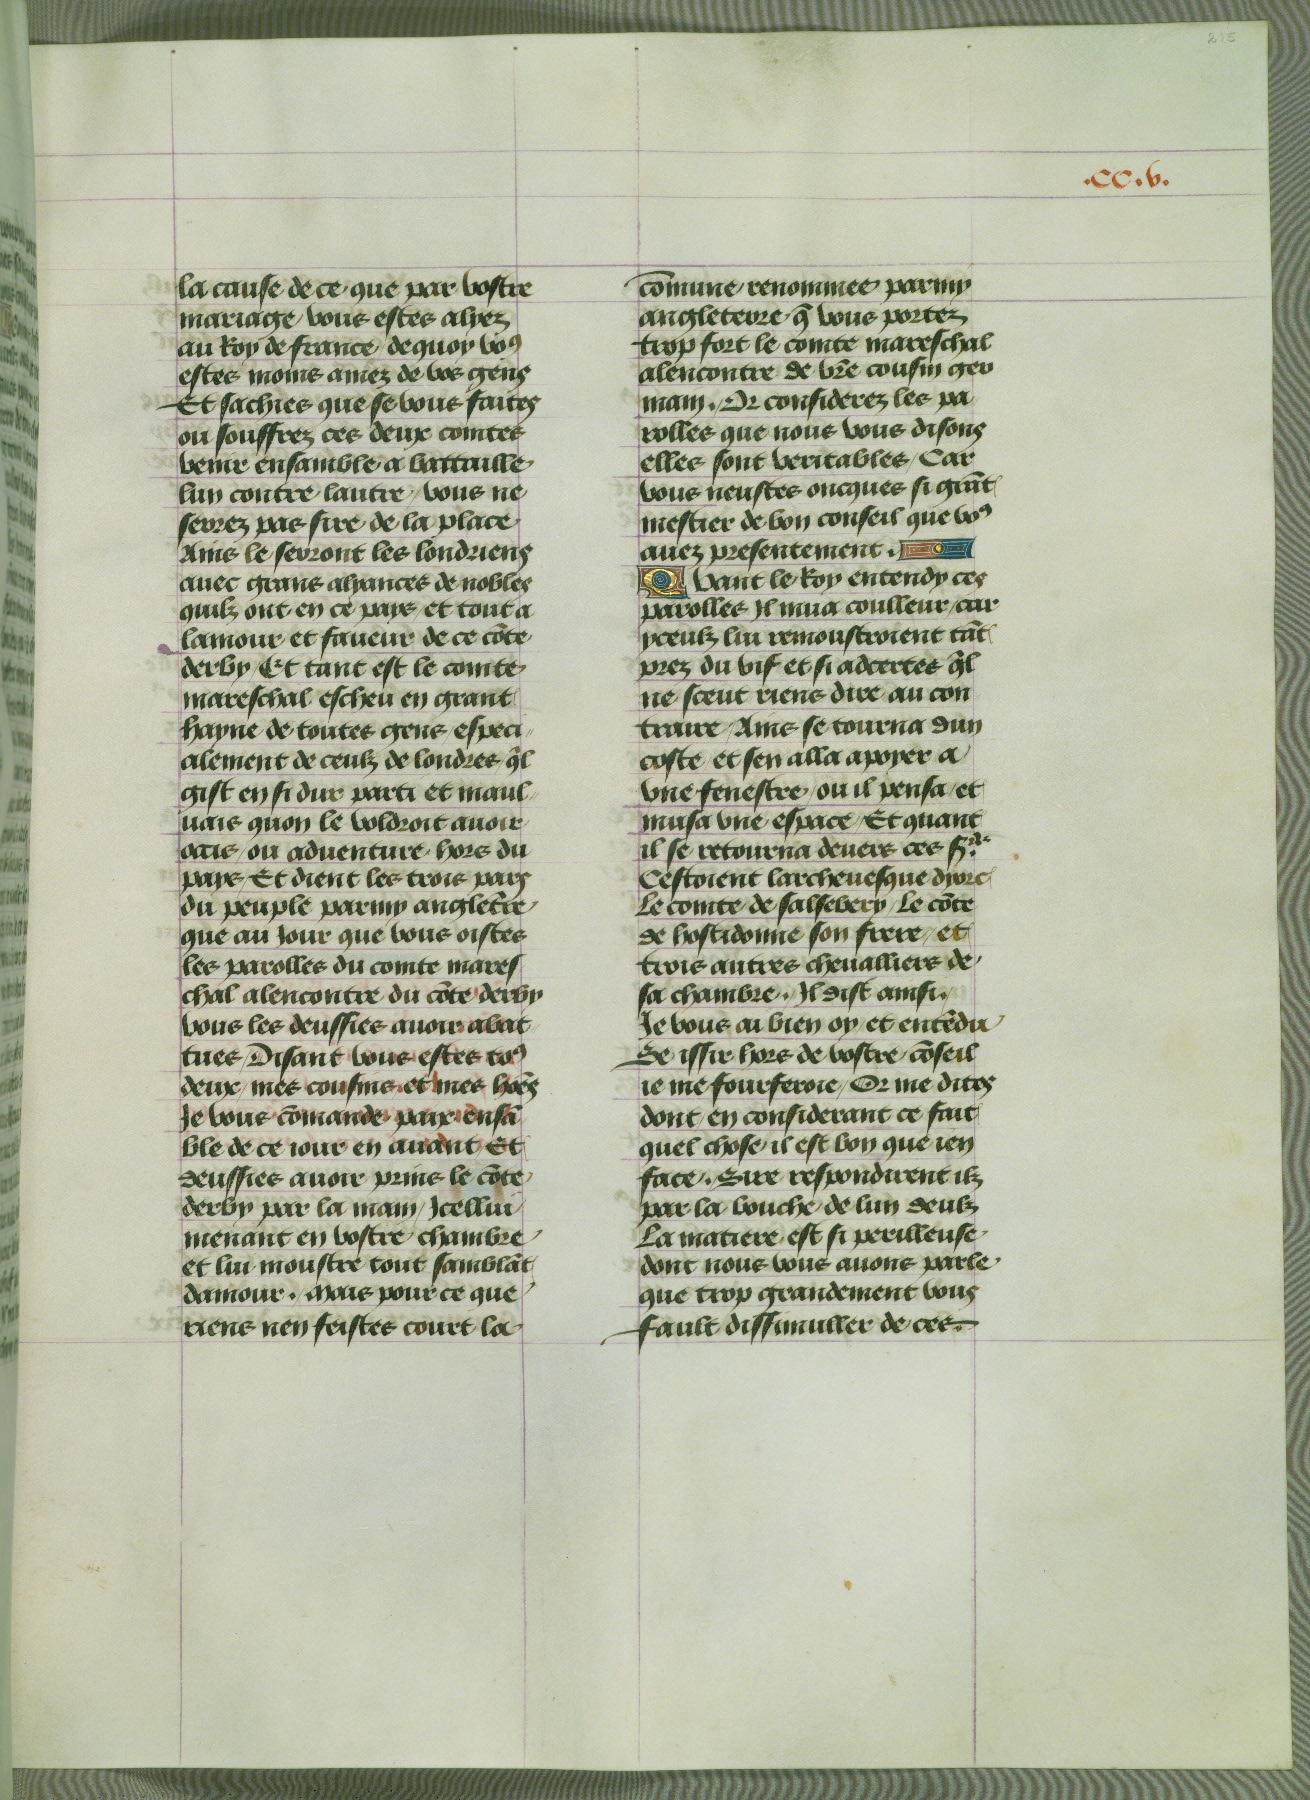 215
.CC.v.
la cause de ce que par vostre
mariage vous estes alyez
au Roy de france / de quoy voꝰ
estes moins amez de vos gens
Et sachies que se vous faites
ou souffrez ces deux comtes
venir ensamble a battaille
lun contre lautre / vous ne
serez pas sire de la place
Ains le seront les londriens
auec grans alyances de nobles
quilz ont en ce pays et tout a
lamour et faueur de ce cōte
derby / Et tant est le comte
mareschal escheu en grant
hayne de toutes gens / especi
alement de ceulz de londres ql̄
gist en si dur parti et maul
uais quon le voldroit auoir
ocis / ou aduenture hors du
pays / Et dient les trois pars
du peuple parmy anglet̄re
que au Jour que vous oistes
les parolles du comte mares
chal alencontre du cōte derby
vous les deussies auoir abat
tues / Disant vous estes toꝰ
deux / mes cousins et mes hōes
Je vous cōmande paix ensā
ble de ce iour en auant Et
deussies auoir prins le cōte
derby par la main / Jcellui
menant en vostre chambre
et lui moustre tout samblāt
damour . Mais pour ce que
riens nen feistes court la
cōmune renommee parmy
angleterre / q̄ vous portez
trop fort le comte mareschal
alencontre de vr̄e cousin ger
main . Or considerez les pa
rolles que nous vous disons
elles sont veritables / Car
vous neustes oncques si grāt
mestier de bon conseil que voꝰ
auez presentement .
Quant le Roy entendy ces
parolles Jl mua coulleur / car
yceulz lui remoustroient tāt
prez du vif et si adcertes ql̄
ne sceut riens dire au con
traire / Ains se tourna dun
coste / et sen alla apoyer a
vne fenestre / ou il pensa / et
musa vne espace / Et quant
il se retourna deuers ces
Cestoient larcheuesque dyorc
Le comte de salsebery / Le cōte
de hostidonne son frere / et
trois autres cheualliers de
sa chambre . Jl dist ainsi .
Je vous ai bien oy / et entēdu
Se issir hors de vostre cōseil
ie me fourferoie / Or me dites
dont en considerant ce fait
quel chose il est bon que ien
face . Sire respondirent ilz
par la bouche de lun deulz
La matiere est si perilleuse
dont nous vous auons parle
que trop grandement vous
fault dissimuller de ces